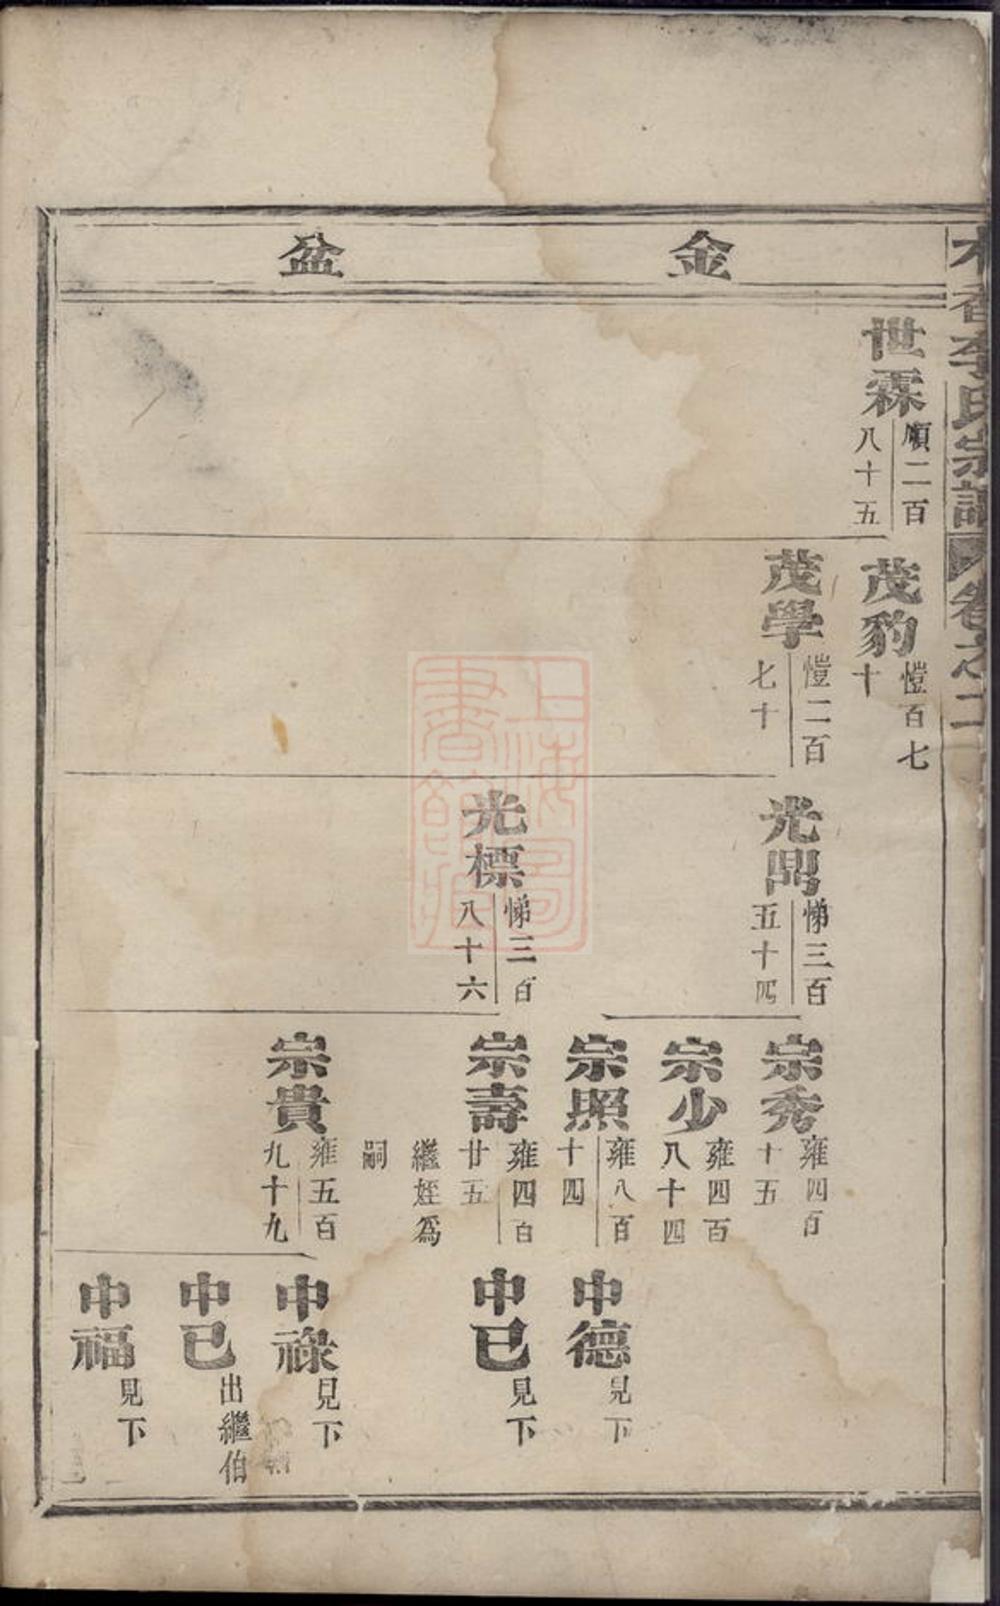 木香李氏宗譜 卷之二
金盆
世霖 順二百八十五
茂豹 愷百七十
茂學 愷二百七十
光閗 悌三百五十四
光標 悌三百八十六
宗秀 雍四百十五
宗少 雍四百八十四
宗照 雍八百十四
宗壽 雍四百廿五
繼姪為嗣
宗貴 雍五百九十九
中德 見下
中已 見下
中祿 見下
中已 出繼伯
中福 見下
上海圖書館藏